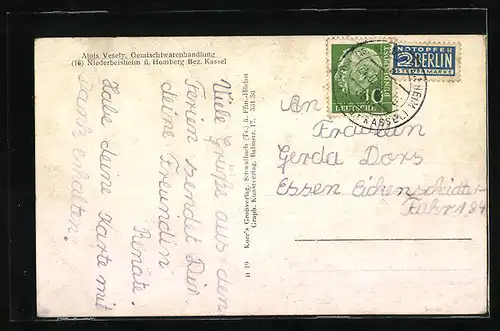 Alois Vesely, Gemischtwarenhandlung
(16) Niederbeisheim ü. Homberg Bez. Kassel
Viele Grüße aus den
Ferien sendet Dir
deine Freundin
Renate.
Habe deine Karte mit
Dank erhalten.
H 19
Korr's Großverlag, Schwalbach (Ts.) ü. Ffm.-Höchst
Graph. Kunstverlag, Bahnstr. 17.
DEUTSCHE
BUNDESPOST
10
NOTOPFER
2 BERLIN
STEUERMARKE
HEIM
KASSEL
An
Fräulein
Gerda Dors
Essen Eichenscheidter-